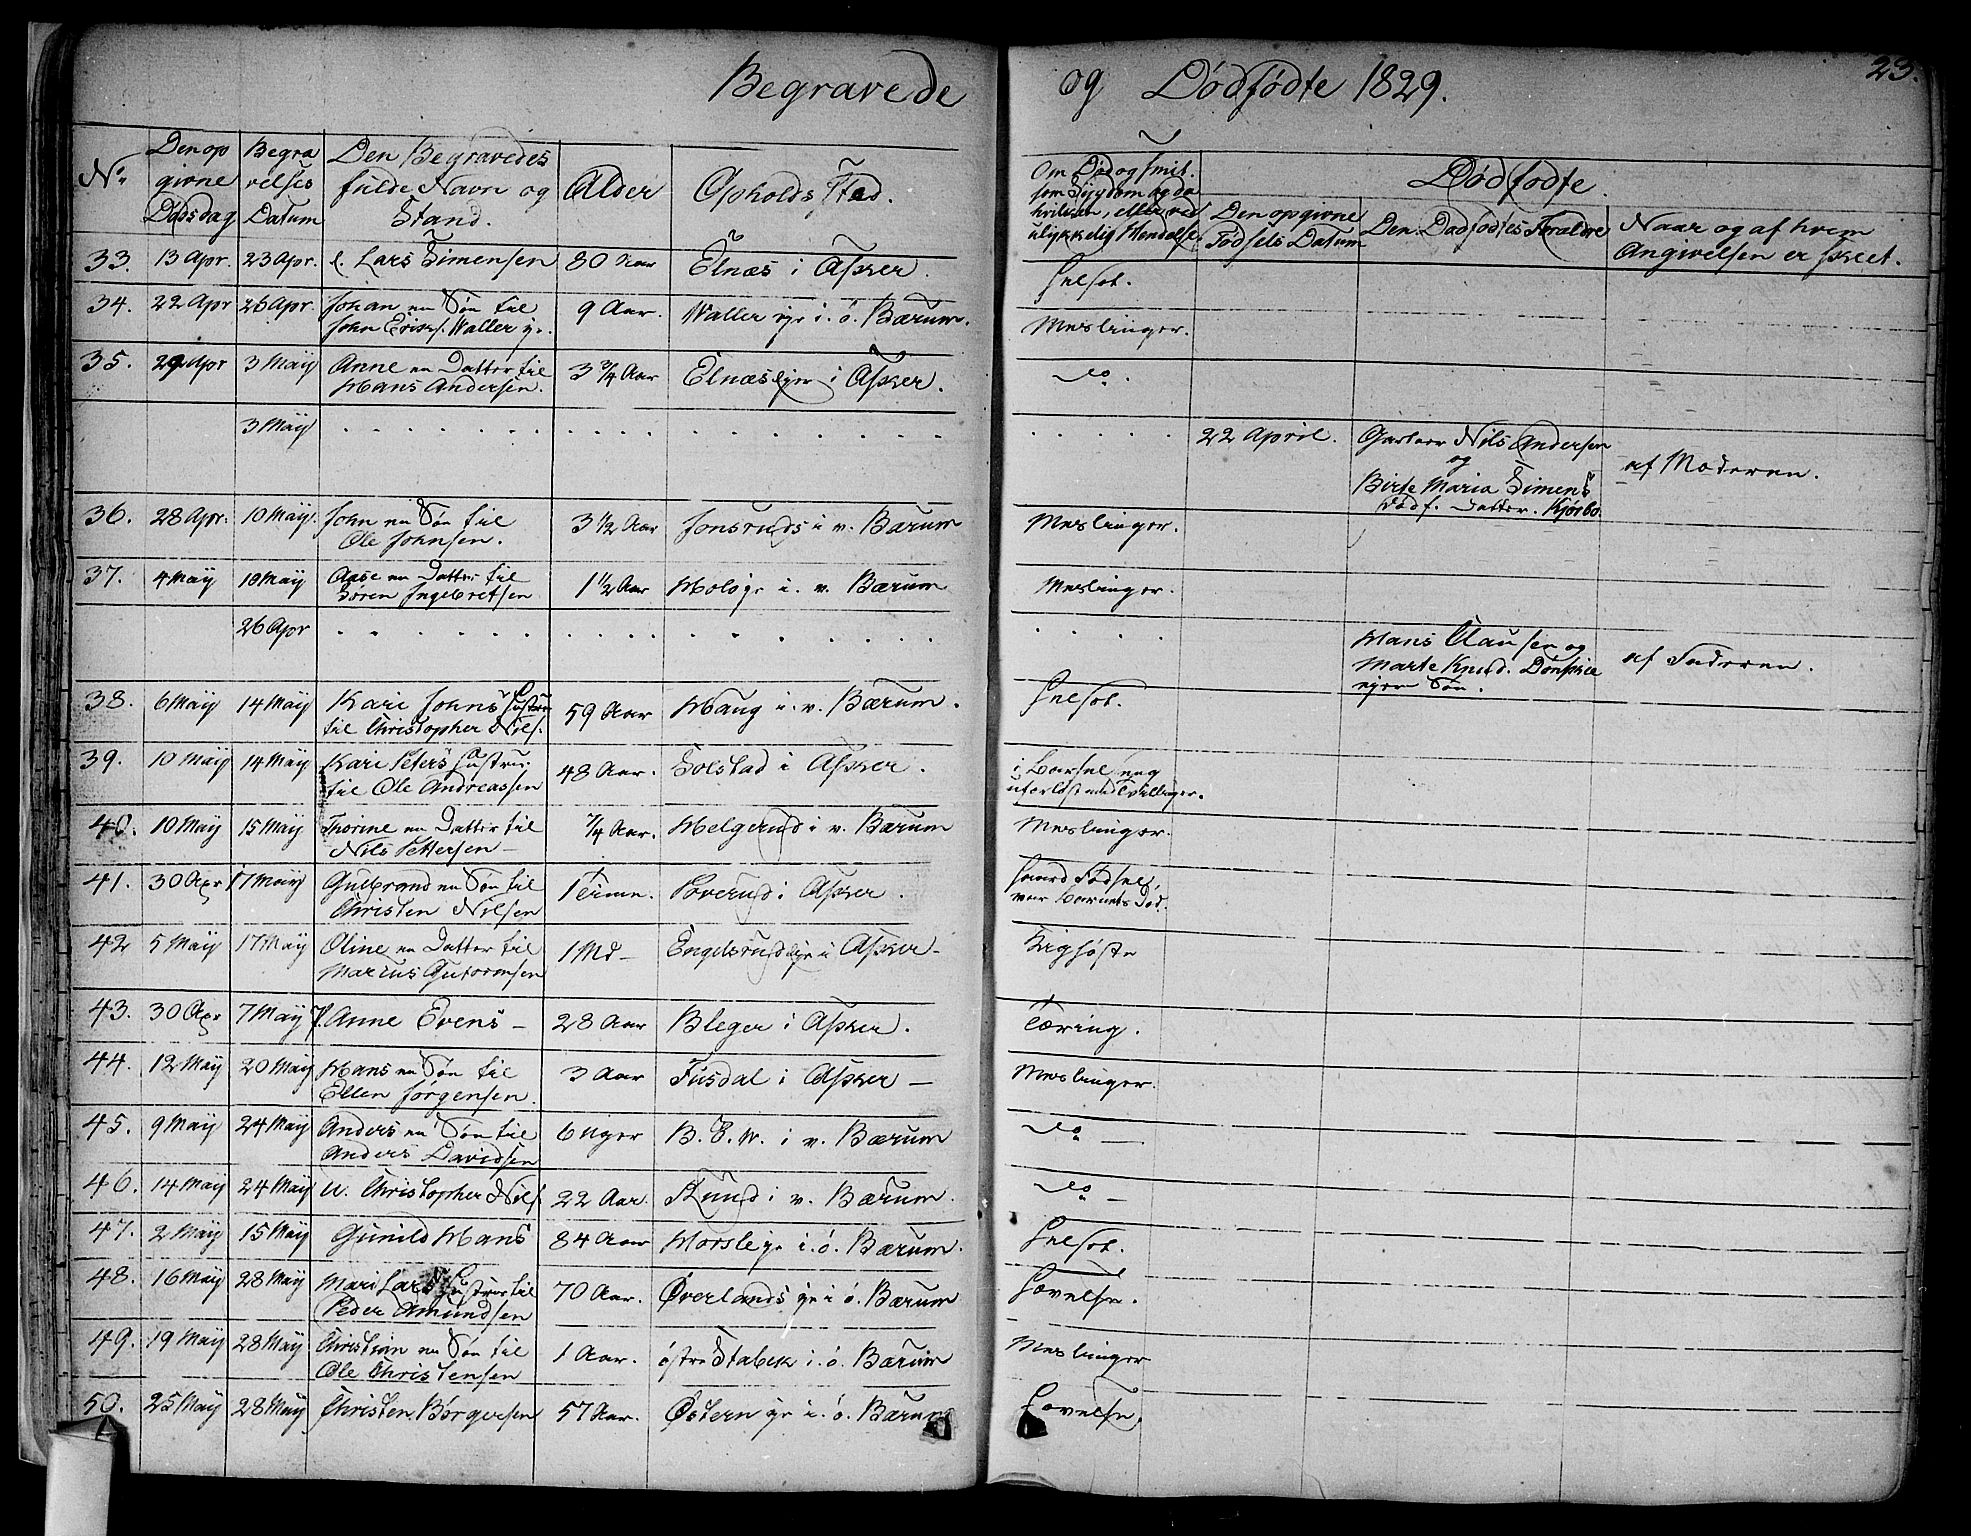 Begravede og Dødfødte 1829.
23.
No
Den op
givne
Dødsdag
Begra
velses
Datum
Den Begravedes
fulde Navn og
Stand.
Alder
Opholds Sted.
Om Død og smit-
som Sygdom og da
hvilken, eller ved
ulykkelig Hendelse.
Dødfødte.
Den opgivne
Fødsels Datum
Den Dødfødtes Forældre
Naar og af hvem
Angivelsen er skeet.
33. 13 Apr. 23 Apr. Lars Simensen 80 Aar Elnæs i Asker.
34. 22 Apr 26 Apr. Johan en Søn til
John Eriks. Waller 9 Aar. Waller i. ø. Bærum. Meslinger.
35. 29 Apr 3 Maij Anne en Datter til
Hans Andersen. 3 3/4 Aar Elnæs i Asker. do.
3 Maij 22 April. Nils Andersen
og
Birte Maria Simens
dødf. Datter. Kjørbo. af Moderen.
36. 28 Apr. 10 Maij. John en Søn til
Ole Johnsen. 3 1/2 Aar Jonsruds i v. Bærum Meslinger.
37. 4 Maij 10 Maij Aase en Datter til
Søren Ingebretsen 1 1/2 Aar i. v. Bærum Meslinger.
26 Apr Hans Clausen og
Marte Knud.
Søn. af Faderen.
38. 6 Maij 14 Maij Kari Johns Hustrue
til Christopher Nils. 59 Aar Haug i. v. Bærum.
39. 10 Maij 14 Maij Kari Peters Hustrue
til Ole Andreassen 48 Aar. Solstad i Asker. i Barselseng
uforløst med Tvillinger.
40. 10 Maij 15 Maij Thorine en Datter til
Nils Pettersen — 7/4 Aar. Helgerud i v. Bærum Meslinger.
41. 30 Apr 17 Maij Gulbrand en Søn til
Christen Nilsen 1 Time. Poverud i Asker. haard Fødsel
var Barnets Død.
42 5 Maij 17 Maij Oline en Datter til
Marcus Gutormsen 1 Md — Engelsrud i Asker — Kighoste
43. 30 Apr 7 Maij Anne Evens — 28 Aar Bleger i Asker. Tæring.
44. 12 Maij 20 Maij Hans en Søn til
Ellen Jørgensen. 3 Aar Fusdal i Asker — Meslinger.
45. 9 Maij 24 Maij Anders en Søn til
Anders Davidsen 6 Uger B. E. W. i v. Bærum do —
46. 14 Maij 24 Maij U. Christopher Nils. 22 Aar. Rud i v. Bærum. do —
47. 2 Maij 15 Maij Gunild Hans 84 Aar i. ø. Bærum.
48. 16 Maij 28 Maij Mari Lars Hustrue til
Peder Amundsen 70 Aar. Øverlands i ø. Bærum Hævelse.
49. 19 Maij 28 Maij Christian en Søn til
Ole Christensen 1 Aar. østre Stabek i. ø. Bærum Meslinger
50. 25 Maij 28 Maij Christen Børgersen 57 Aar. Østern i. ø. Bærum Hævelse.